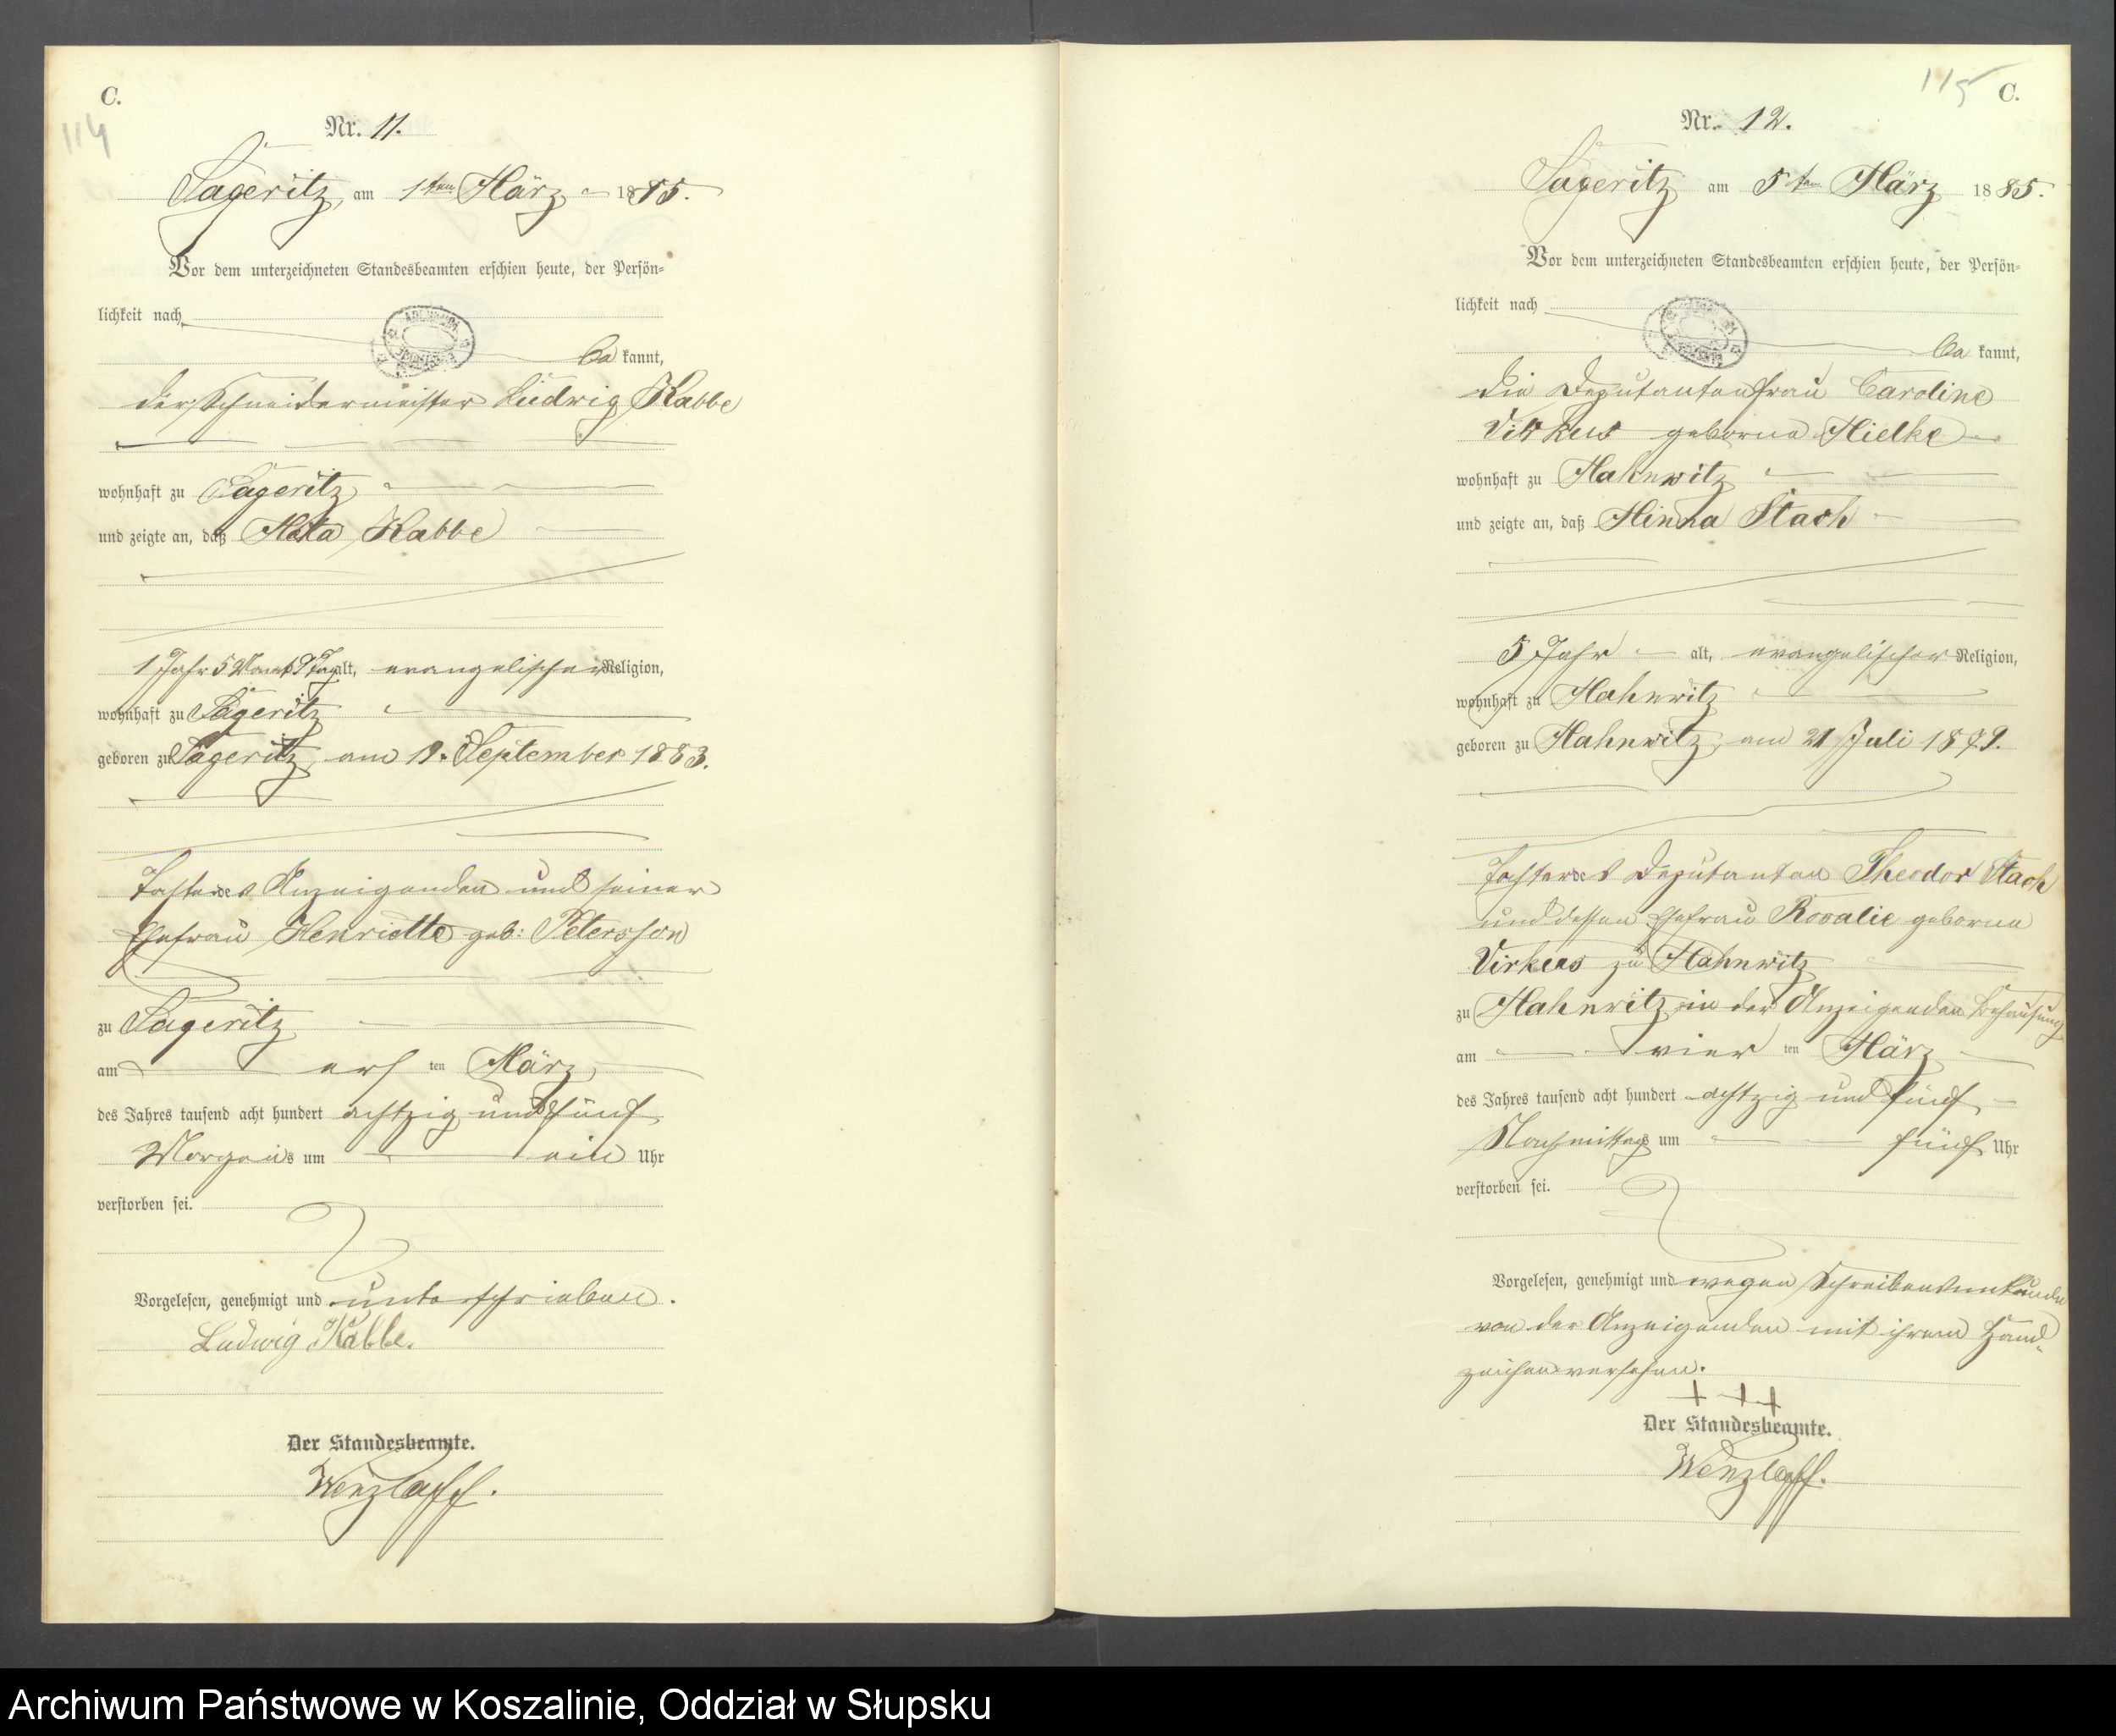 C.
114
Nr. 11.
Sageritz, am 1ten März 1885.
Vor dem unterzeichneten Standesbeamten erschien heute, der Persön-
lichkeit nach
be kannt,
der Schneidermeister Ludwig Kabbe
wohnhaft zu Sageritz
und zeigte an, daß Meta Kabbe
1 Jahr 5 Monat Tag alt, evangelischer Religion,
wohnhaft zu Sageritz
geboren zu Sageritz, am 19. September 1883.
Tochter des Anzeigenden und seiner
Ehefrau Henriette geb: Petersson
zu Sageritz
am ers ten März
des Jahres tausend acht hundert achtzig und fünf
Morgens um ein Uhr
verstorben sei.
Vorgelesen, genehmigt und unterschrieben.
Ludwig Kabbe.
Der Standesbeamte.
Wenzlaff.
115 C.
Nr. 12.
Sageritz am 5ten März 1885.
Vor dem unterzeichneten Standesbeamten erschien heute, der Persön-
lichkeit nach
be kannt,
die Deputantenfrau Caroline
Virkus geborne Mielke
wohnhaft zu Mahnwitz
und zeigte an, daß Minna Stach
5 Jahr alt, evangelischer Religion,
wohnhaft zu Mahnwitz
geboren zu Mahnwitz, am 21 Juli 1879.
Tochter des Deputanten Theodor Stach
und dessen Ehefrau Rosalie geborne
Virkus zu Mahnwitz
zu Mahnwitz in der Anzeigenden Behausung
am vier ten März
des Jahres tausend acht hundert achtzig und fünf
Nachmittags um fünf Uhr
verstorben sei.
Vorgelesen, genehmigt und wegen Schreibensunkunde
von der Anzeigenden mit ihrem Hand-
zeichen versehen.
+ + +
Der Standesbeamte.
Wenzlaff.
Archiwum Państwowe w Koszalinie, Oddział w Słupsku